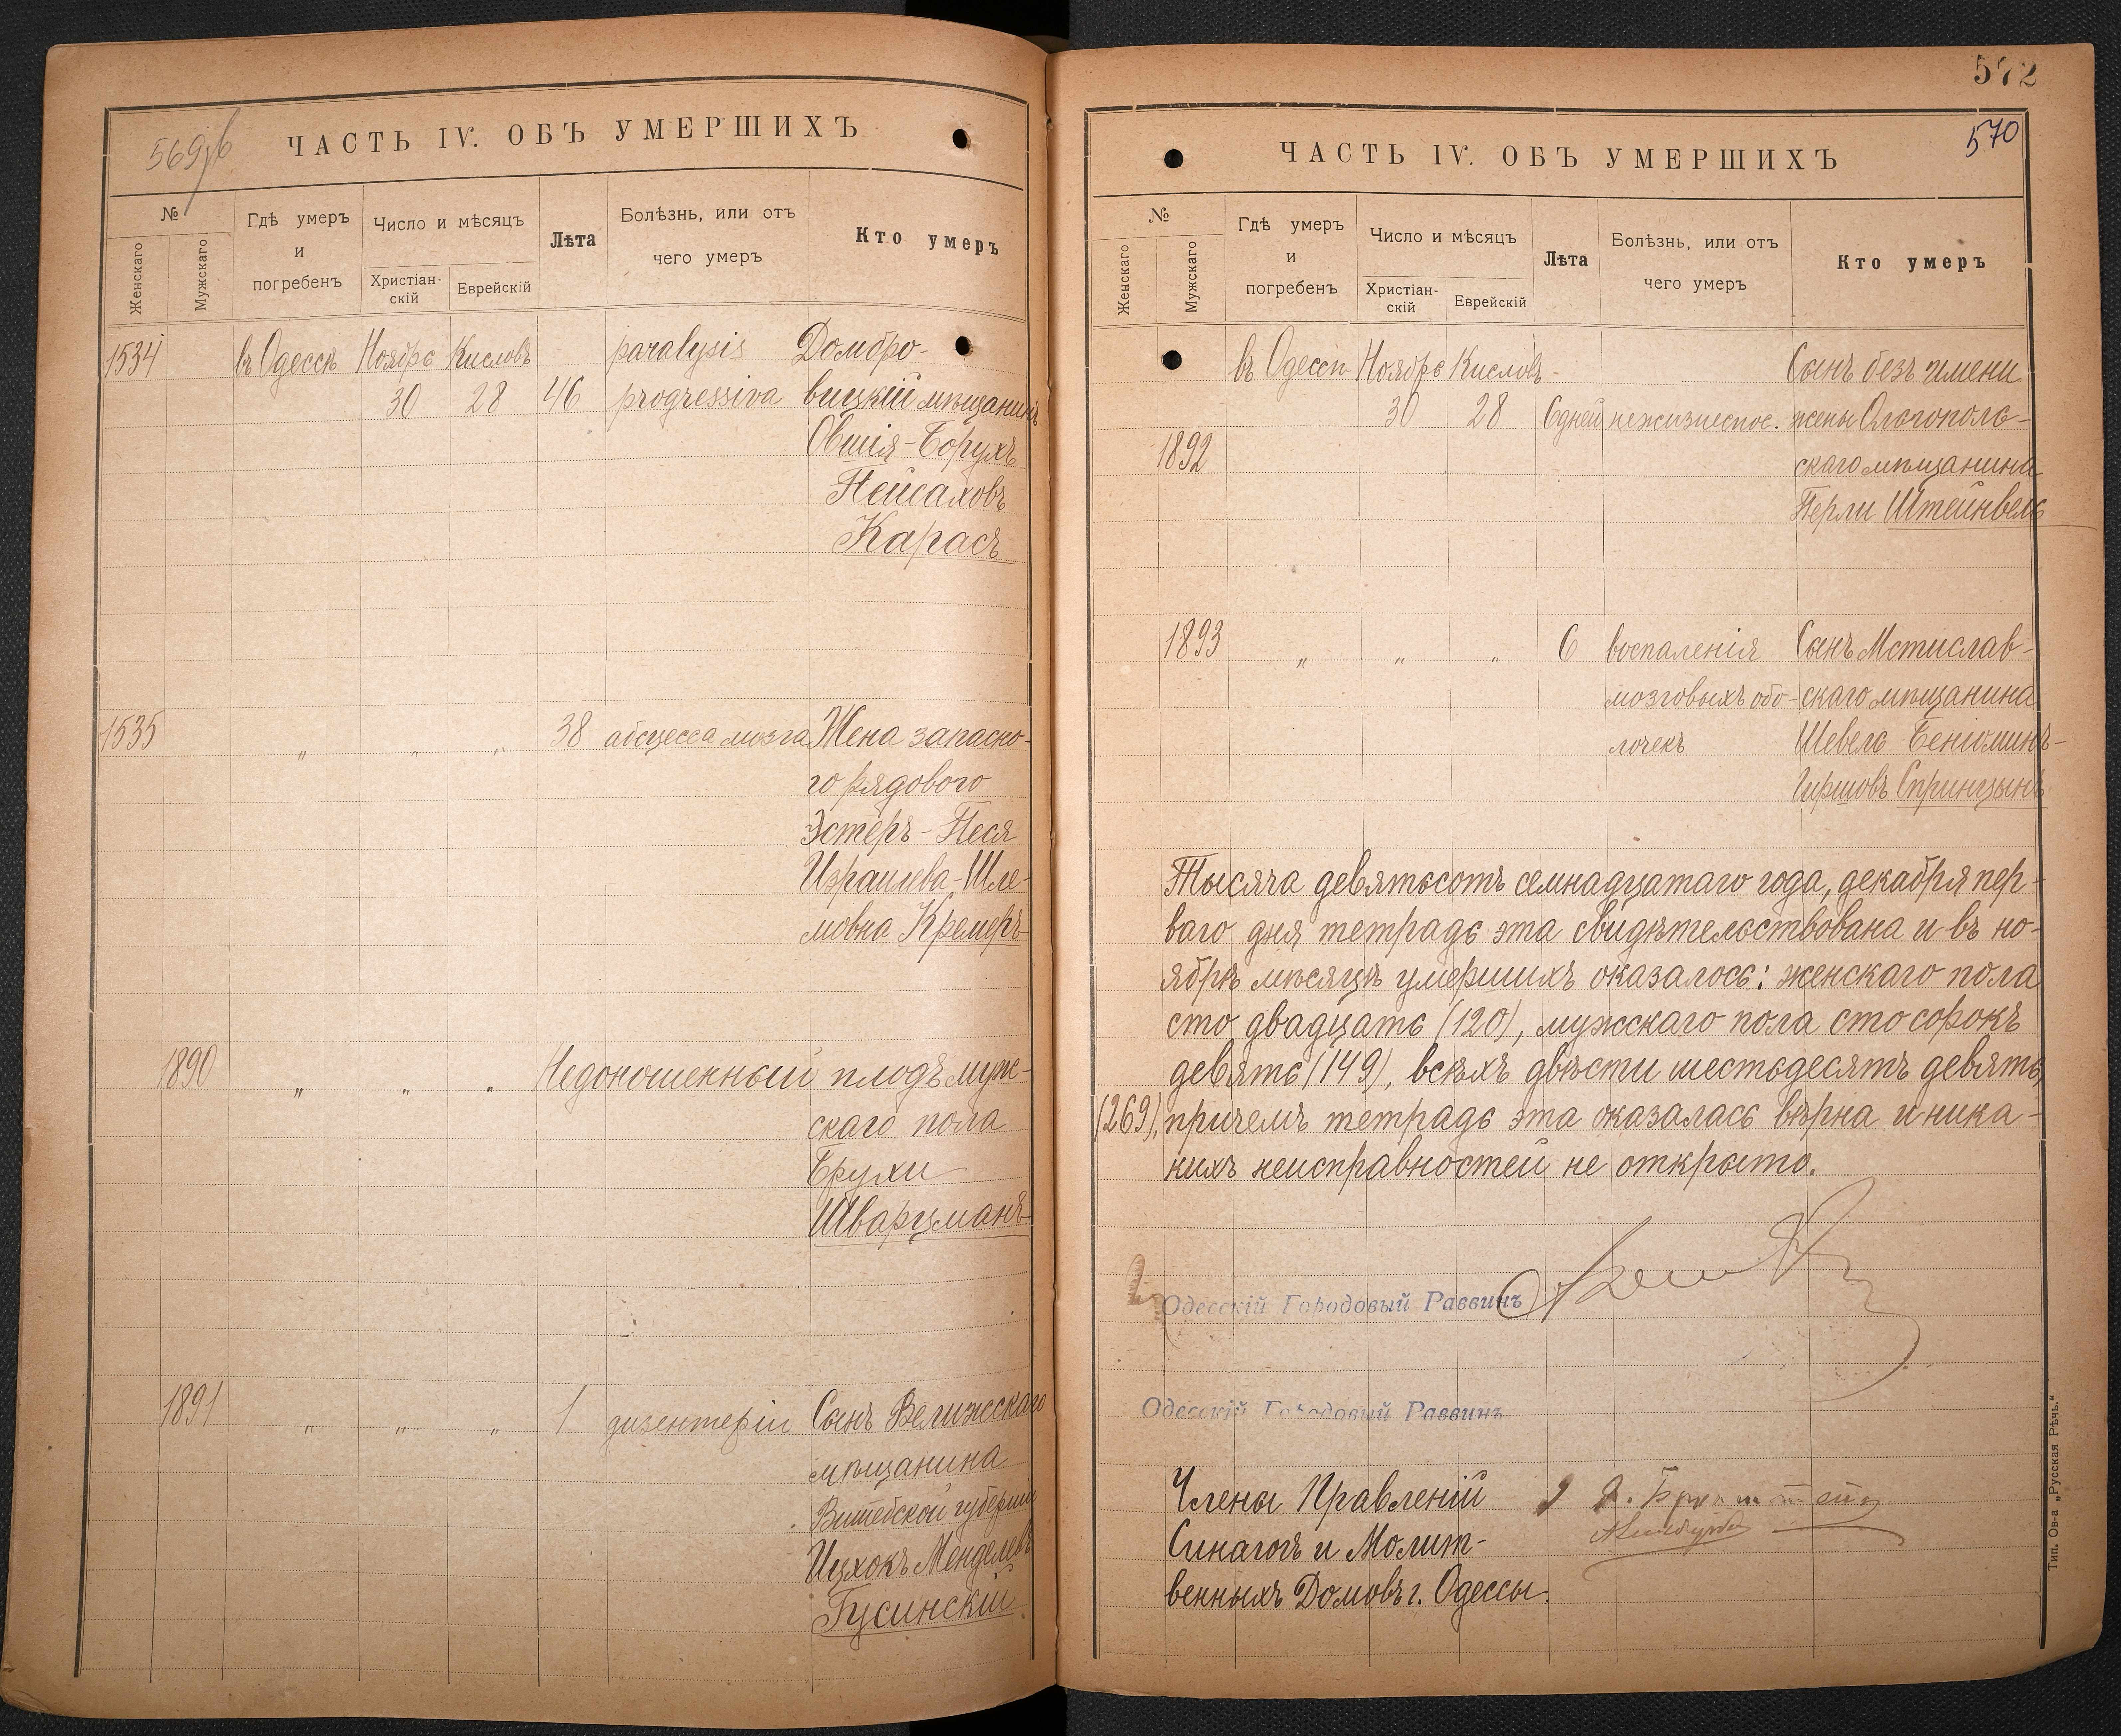 569об
ЧАСТЬ IV. ОБЪ УМЕРШИХЪ
№
Женскаго
Мужскаго
Гдѣ умеръ
и
погребенъ
Число и мѣсяцъ
Христіан-
скій
Еврейскій
Лѣта
Болѣзнь, или отъ
чего умеръ
Кто умеръ
1534 въ Одессѣ Ноябрь Кисловъ paralysis Домбро-
30 28 46 progressiva вицкій мѣщанинъ
Овшія-Борухъ
Пейсаховъ
Карасъ
1535 " " " 38 абсцесса мозга Жена запасно-
го рядового
Эстеръ-Песя
Израилева-Шле-
мовна Кремеръ
1890 " " " Недоношенный плодъ муж-
скаго пола
Брухи
Шварцманъ
1891 " " " 1 дизентеріи Сынъ Велижскаго
мѣщанина
Витебской губерніи
Ицхокъ Менделевъ
Гусинскій
572
570
ЧАСТЬ IV. ОБЪ УМЕРШИХЪ
№
Женскаго
Мужскаго
Гдѣ умеръ
и
погребенъ
Число и мѣсяцъ
Христіан-
скій
Еврейскій
Лѣта
Болѣзнь, или отъ
чего умеръ
Кто умеръ
въ Одессѣ Ноябрь Кисловъ Сынъ безъ имени
30 28 6 дней нежизнеспос. жены Ольгополь-
1892 скаго мѣщанина
Перли Штейнвель
1893 " " " 6 воспаленія Сынъ Мстислав-
мозговыхъ обо- скаго мѣщанина
лочекъ Шевель Беніоминъ-
Гиршовъ Спринцынъ
Тысяча девятьсотъ семнадцатаго года, декабря пер-
ваго дня тетрадь эта свидѣтельствована и въ но-
ябрѣ мѣсяцѣ умершихъ оказалось: женскаго пола
сто двадцать (120), мужскаго пола сто сорокъ
девять (149), всѣхъ двѣсти шестьдесятъ девять
(269), причемъ тетрадь эта оказалась вѣрна и ника-
кихъ неисправностей не открыто.
Одесскій Городовый Раввинъ
Одесскій Городовый Раввинъ
Члены Правленій
Синагогъ и Молит-
венныхъ Домовъ г. Одессы.
Тип. Ов-а „Русская Рѣчь."